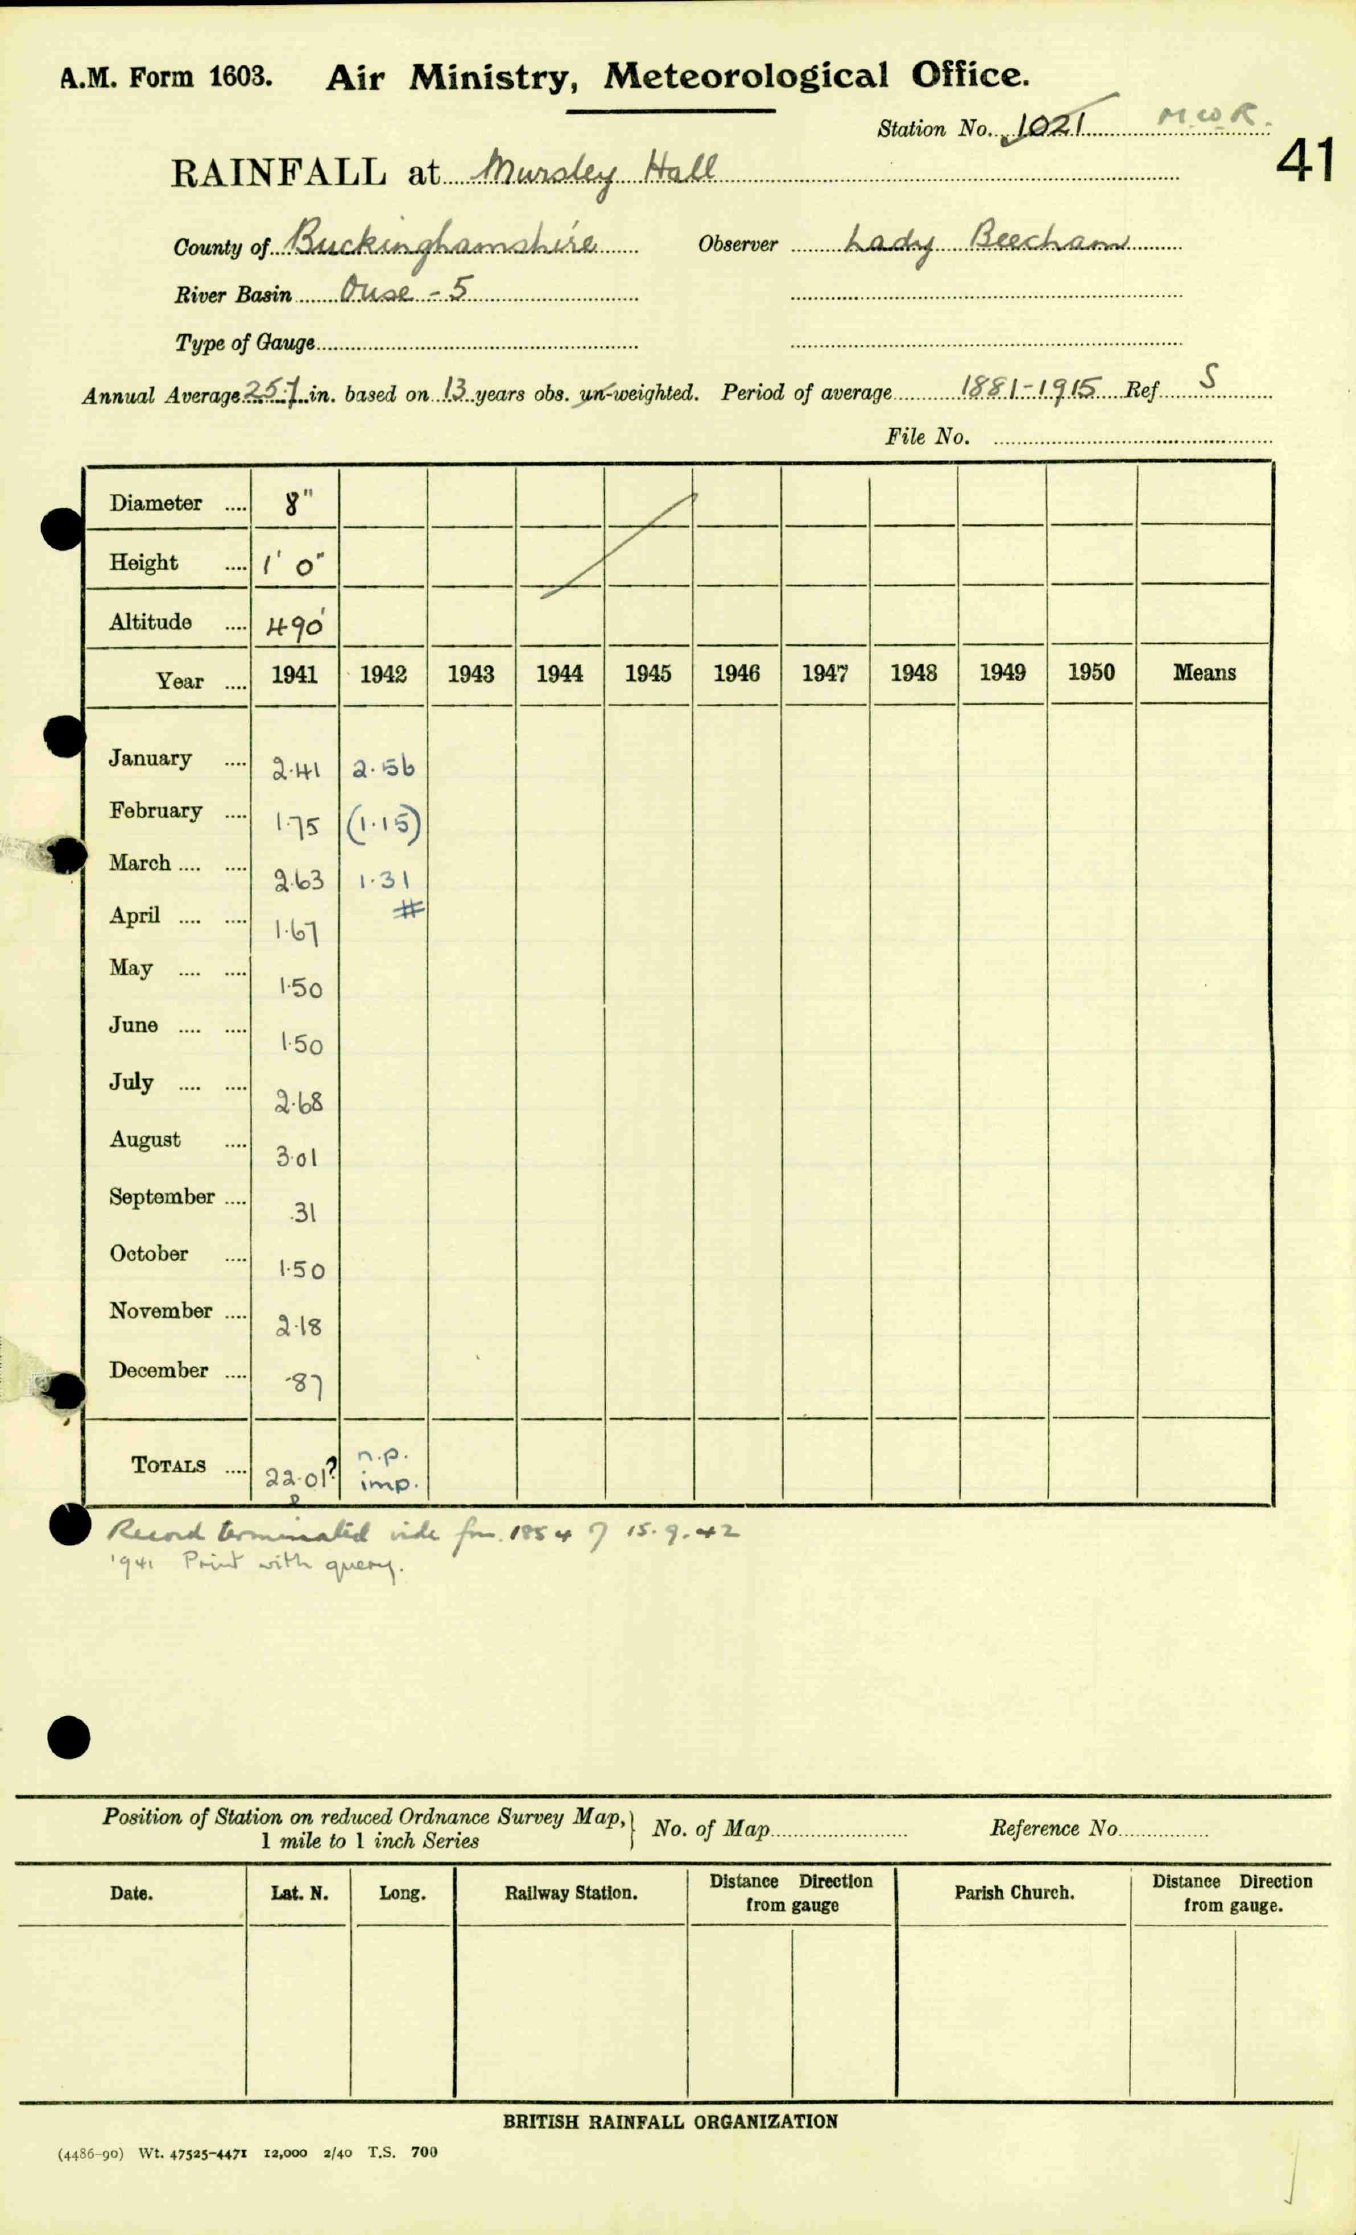 A.M. Form 1603. Air Ministry, Meteorological Office.
Station No. 1021 M.W.R.
41
RAINFALL at Mursley Hall
County of Buckinghamshire Observer Lady Beecham
River Basin Ouse - 5
Type of Gauge
Annual Average 25.7 in. based on 13 years obs. un-weighted. Period of average 1881-1915 Ref S
File No.
Diameter .... 8"
Height .... 1' 0"
Altitude .... 490'
Year .... 1941 1942 1943 1944 1945 1946 1947 1948 1949 1950 Means
January .... 2.41 2.56
February .... 1.75 (1.15)
March .... .... 2.63 1.31
April .... .... 1.67 #
May .... .... 1.50
June .... .... 1.50
July .... .... 2.68
August .... 3.01
September .... .31
October .... 1.50
November .... 2.18
December .... .87
TOTALS .... 22.01? n.p. imp.
Record terminated vide fm. 1854 of 15.9.42
1941 Print with query.
Position of Station on reduced Ordnance Survey Map, 1 mile to 1 inch Series } No. of Map Reference No
Date. Lat. N. Long. Railway Station. Distance from gauge Direction Parish Church. Distance Direction from gauge.
BRITISH RAINFALL ORGANIZATION
(4486-90) Wt. 47525-4471 12,000 2/40 T.S. 700